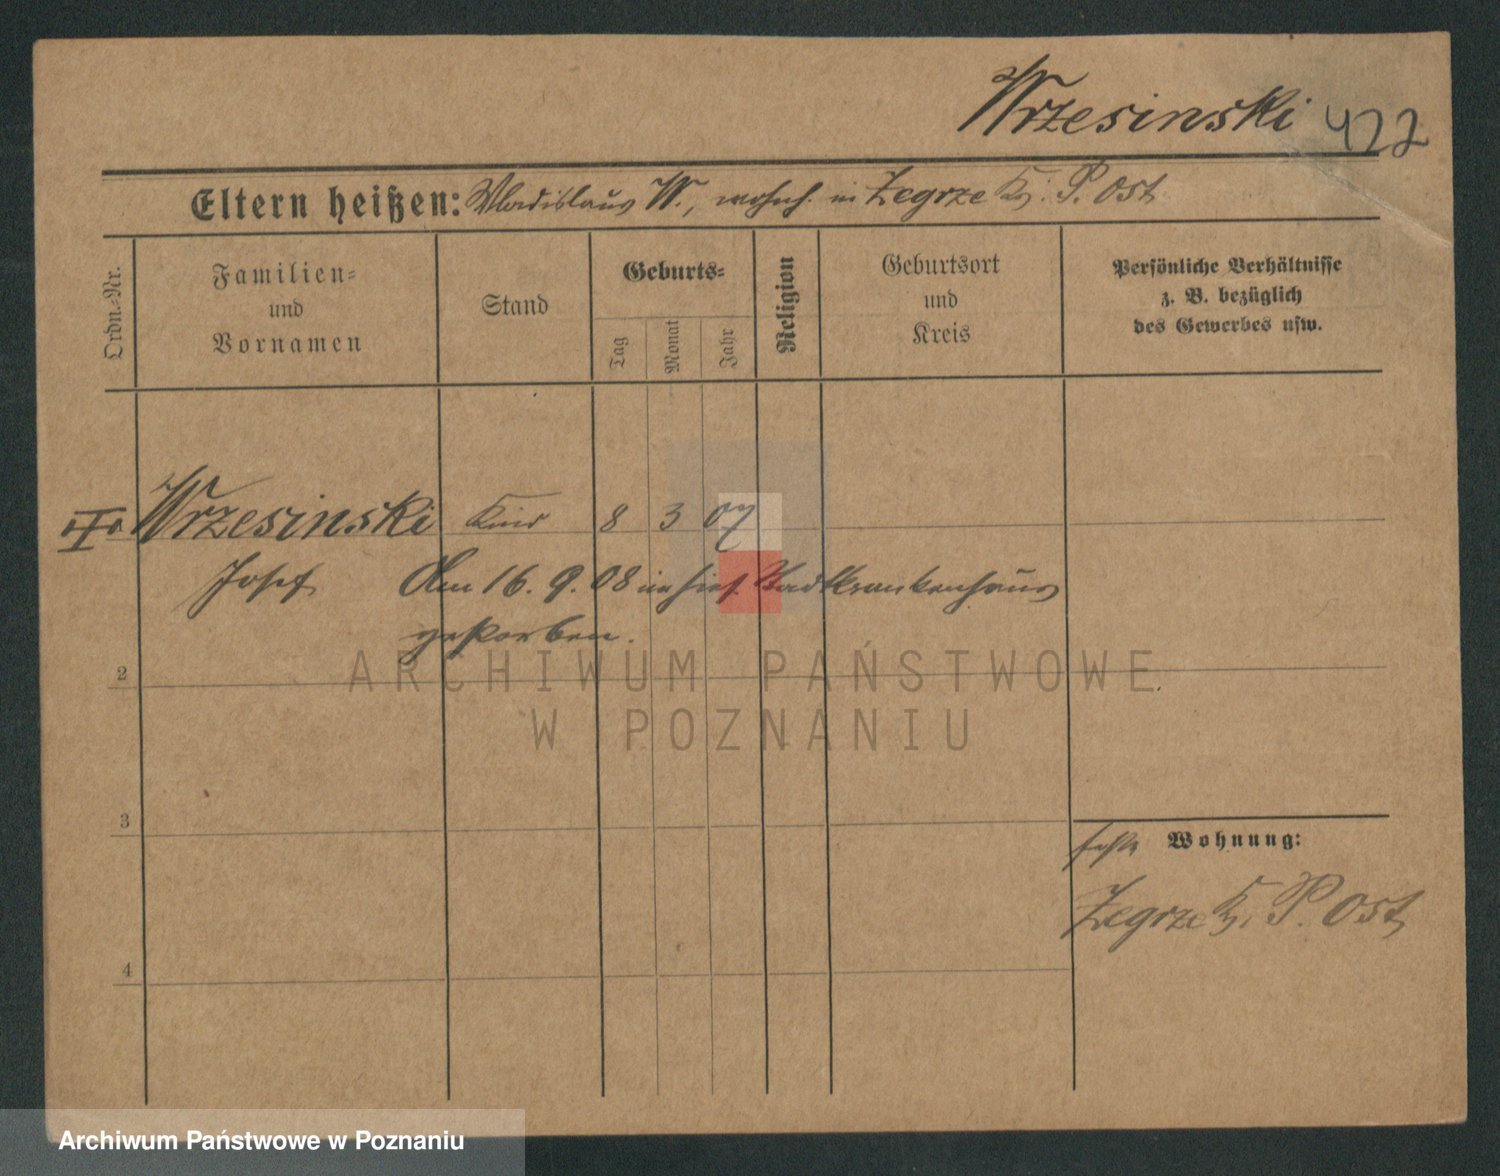 Wrzesinski 422
Eltern heißen: Wladislaus W., wohnh. in Zegrze Kr. P. Ost
Ordn.-Nr.
Familien-
und
Vornamen
Stand
Geburts-
Tag
Monat
Jahr
Religion
Geburtsort
und
Kreis
Persönliche Verhältnisse
z. B. bezüglich
des Gewerbes usw.
Wrzesinski Kind 8 3 07
Josef Am 16. 9. 08 im hies. Stadtkrankenhaus
gestorben.
2
ARCHIWUM PAŃSTWOWE
W POZNANIU
3
Wohnung:
Zegrze Kr. P. Ost
4
Archiwum Państwowe w Poznaniu